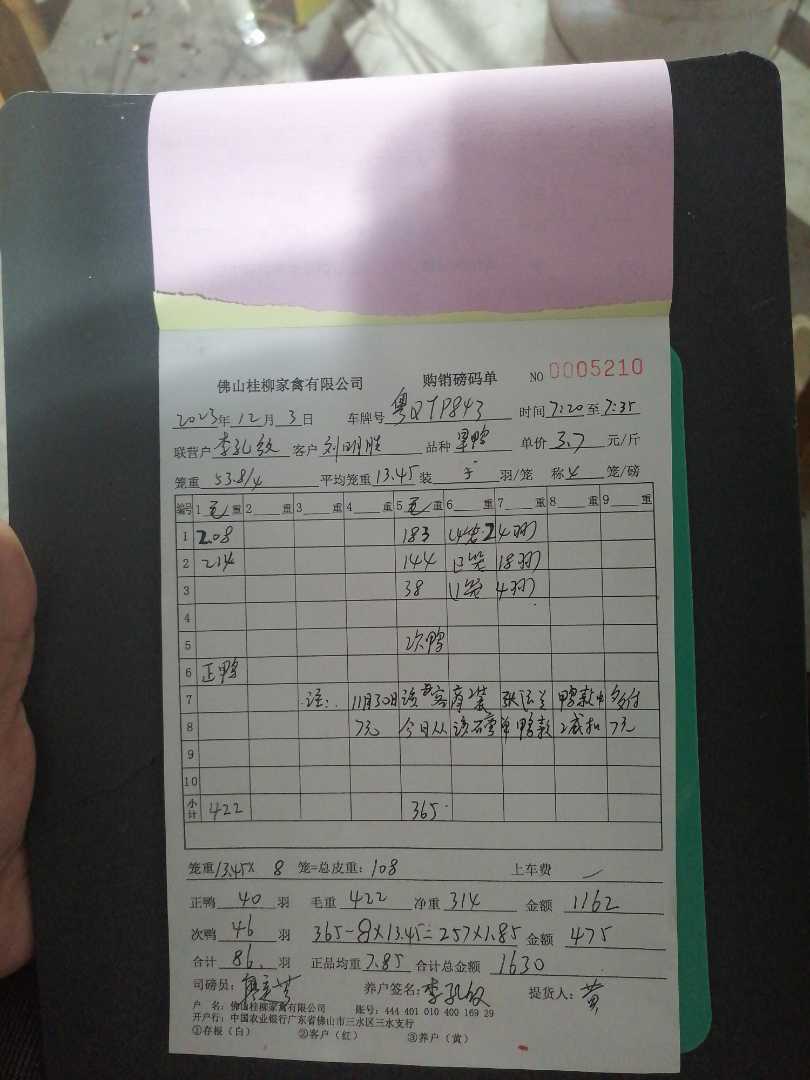 佛山桂柳家禽有限公司 购销磅码单 NO 0005210
2023年12月3日 车牌号 粤QTP843 时间7:20至7:35
联营户 李孔 客户 刘明胜 品种 单价 3.7 元/斤
笼重 53.8/4 平均笼重 13.45 装 羽/笼 称 4 笼/磅
编号 1 毛 重 2 重 3 重 4 重 5 毛 重 6 重 7 重 8 重 9 重
1 208 183 4笼 24羽
2 214 144 3笼 18羽
3 38 1笼 4羽
4
5 次鸭
6 正鸭
7 注: 11月30日该客 装 张 鸭款中多付
8 7元 今日从该磅单鸭款 减扣 7元
9
10
小计 422 365
笼重13.45× 8 笼=总皮重: 108 上车费
正鸭 40 羽 毛重 422 净重 314 金额 1162
次鸭 46 羽 365-8×13.45=257×1.85 金额 475
合计 86 羽 正品均重 7.85 合计总金额 1630
司磅员: 养户签名: 李孔 提货人: 黄
户 名: 佛山桂柳家禽有限公司 账号: 444 401 010 400 169 29
开户行: 中国农业银行广东省佛山市三水区三水支行
①存根(白) ②客户(红) ③养户(黄)